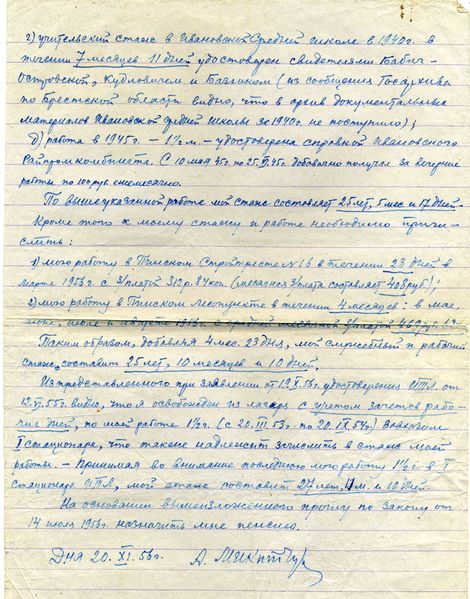 г) учительский стаж в Ивановской Средней школе в 1940г. в
течении 7 месяцев 11 дней удостоверен свидетелями Бабич-
Островской, Кудловичем и (из сообщения Госархива
по Брестской области видно, что в архив документальных
материалов Ивановской средней школы за 1940г. не поступило);
д) работа в 1945г. – 1½ м. – удостоверена справкой Ивановского
Райпромкомбината. С 10 мая 45г. по 25. 45г. добавочно получал за вечерние
работы по 100 руб. ежемесячно.
По вышеуказанной работе мой стаж составляет 25 лет, 5 мес. и 17 дней.
Кроме того к моему стажу и работе необходимо причи-
слить:
1) мою работу в Пинском Стройтресте №16 в течении 23 дней в
марте 1956г. с з/платой 312 р. 84 коп. (месячная з/плата составляет 408 руб);
2) мою работу в Пинском в течении 4 месяцев: в мае,
июне, июле и августе
Таким образом, добавляя 4 мес. 23 дня, мой служебный и рабочий
стаж составит 25 лет, 10 месяцев и 10 дней.
Из представленного при заявлении от 56г. удостоверения ИТЛ. от
55г. видно, что я освобожден из лагеря с учетом зачетов рабо-
чих дней, по моей работе 1½ г. (с 20.III.53г. по 20.IX.54г.) завхозом
I стационара, что также надлежит зачислить в стаж моей
работы. – Принимая во внимание последнюю мою работу 1½ г. в I
Стационаре ИТЛ, мой стаж составит 27 лет, м. и 10 дней.
На основании вышеизложенного прошу по закону от
14 июля 1956г. назначить мне пенсию.
Дня 20.XI.56г. А.